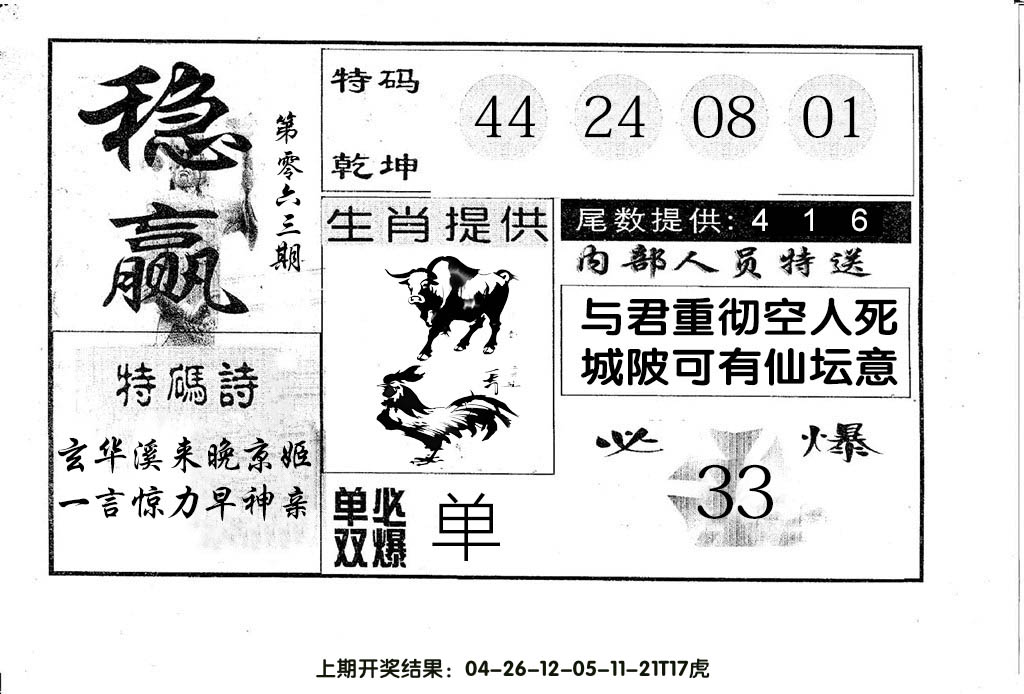 稳赢
第零六三期
特码诗
玄华溪来晚京姬
一言惊力早神亲
特码
乾坤
44 24 08 01
生肖提供
单双必爆
单
尾数提供: 4 1 6
内部人员特送
与君重彻空人死
城陂可有仙坛意
必爆
33
上期开奖结果：04-26-12-05-11-21T17虎